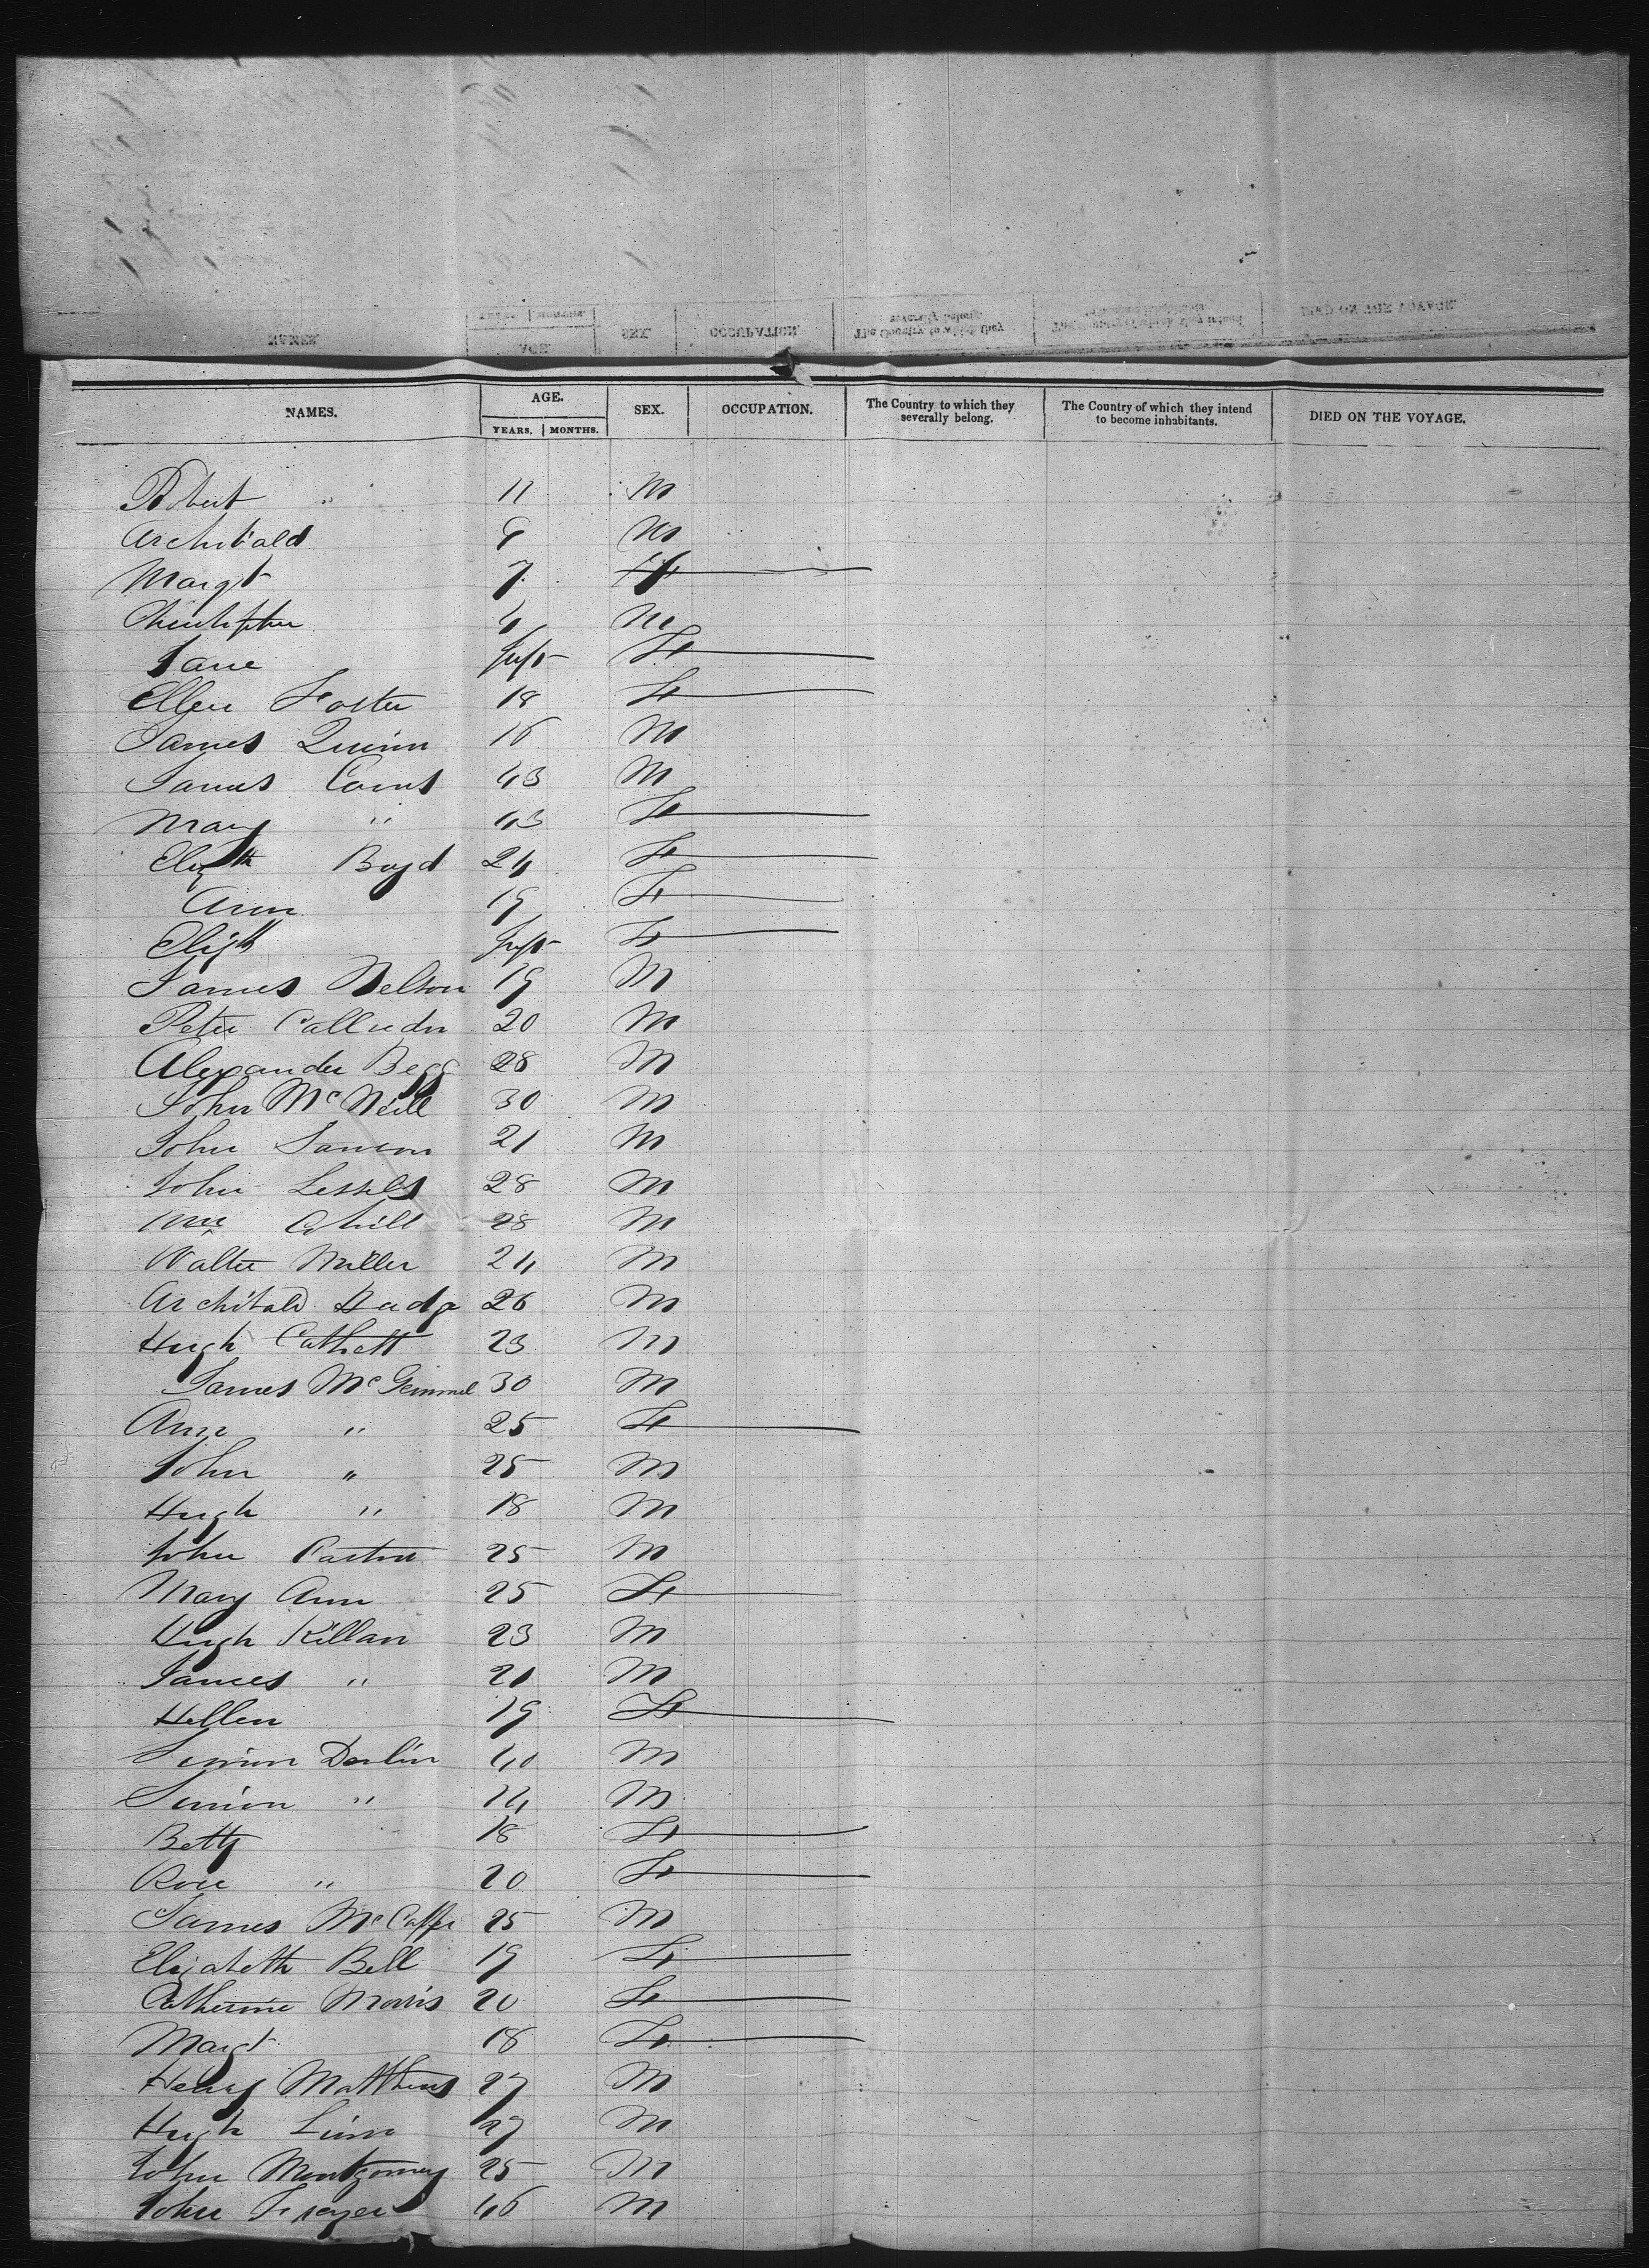 NAMES. AGE. YEARS. MONTHS. SEX. OCCUPATION. The Country to which they severally belong. The Country of which they intend to become inhabitants. DIED ON THE VOYAGE.
Robert " 11 M
Archibald 9 M
Margt 7 F
Christopher 4 M
Jane Inft F
Ellen Foster 18 F
James Quinn 16 M
James Cairns 43 M
Mary " 43 F
Elizth Boyd 24 F
Ann 19 F
Elizth Inft F
James Nelson 19 M
Peter 20 M
Alexander Begg 28 M
John McNeill 30 M
John Samson 21 M
John Lessels 28 M
Wm Cahill 28 M
Walter Miller 24 M
Archibald 26 M
Hugh 23 M
James McGemmel 30 M
Ann " 25 F
John " 25 M
Hugh " 18 M
John 25 M
Mary Ann 25 F
Hugh Killan 23 M
James " 21 M
Hellen 19 F
Simon Devlin 40 M
Simon " 14 M
Betty 18 F
Rose " 20 F
James 25 M
Elizabeth Bell 19 F
Catherine Morris 20 F
Margt 18 F
Henry Matthews 27 M
Hugh Linn 27 M
John Montgomery 25 M
John Frazer 46 M